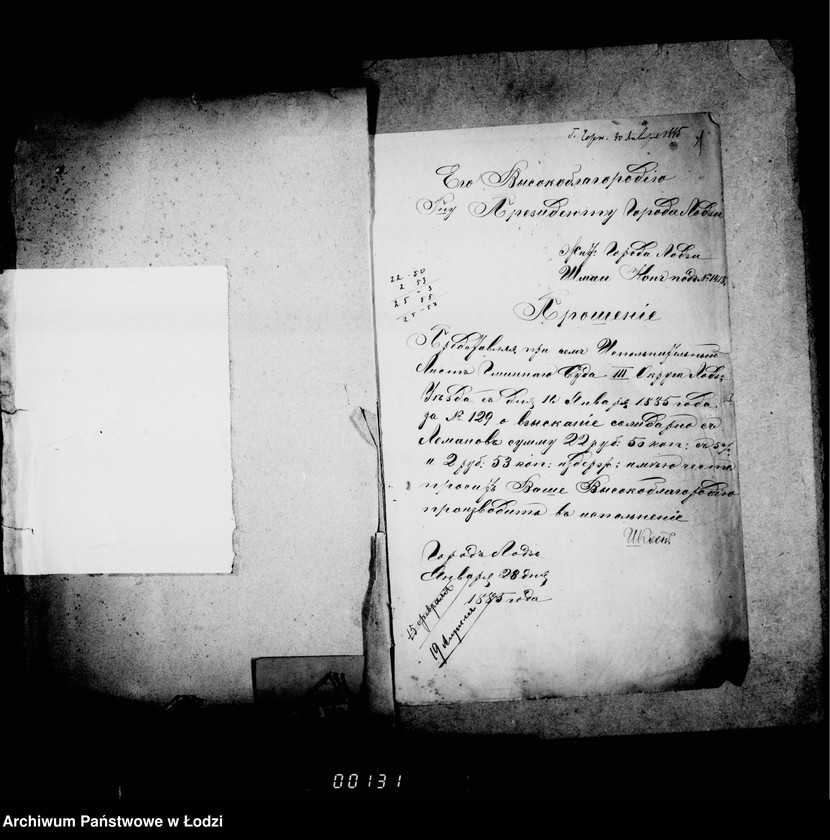 30 Января 1885
Его Высокоблагородію
Гну Президенту Города Лодзи
Жит: Города Лодзи
Шмаи Кон подъ № 1418
22 - 50
2 53
25 - 
Прошеніе
Представляя при семъ Исполнительный
Листъ Гминнаго Суда III Округа Лодз:
Уѣзда съ дня 12 Января 1885 года
за № 129 о взысканіе солидарно съ
сумму 22 руб: 50 коп: съ
и 2 руб: 53 коп: издерж: имѣю честь
просить Ваше Высокоблагородіе
произвѣсть въ исполненіе
Городъ Лодзь
Января 28 дня
1885 года
15 февраля
19 Апреля
00131
Archiwum Państwowe w Łodzi